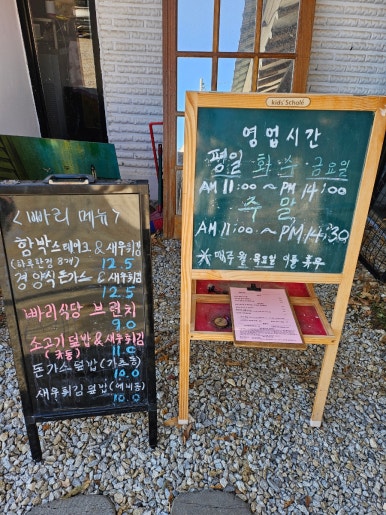 <빠리 메뉴>
함박스테이크 & 새우튀김
(하루한정 8개) 12.5
경양식 돈가스 & 새우튀김
12.5
빠리식당 브런치
9.0
소고기 덮밥 & 새우튀김
(규동) 11.0
돈가스 덮밥 (가츠동)
10.0
새우튀김 덮밥 (에비동)
10.0
kids' Schole
영업시간
평일 화 수 금요일
AM 11:00 ~ PM 14:00
주 말
AM 11:00 ~ PM 14:30
※ 매주 월 목요일 이틀 휴무